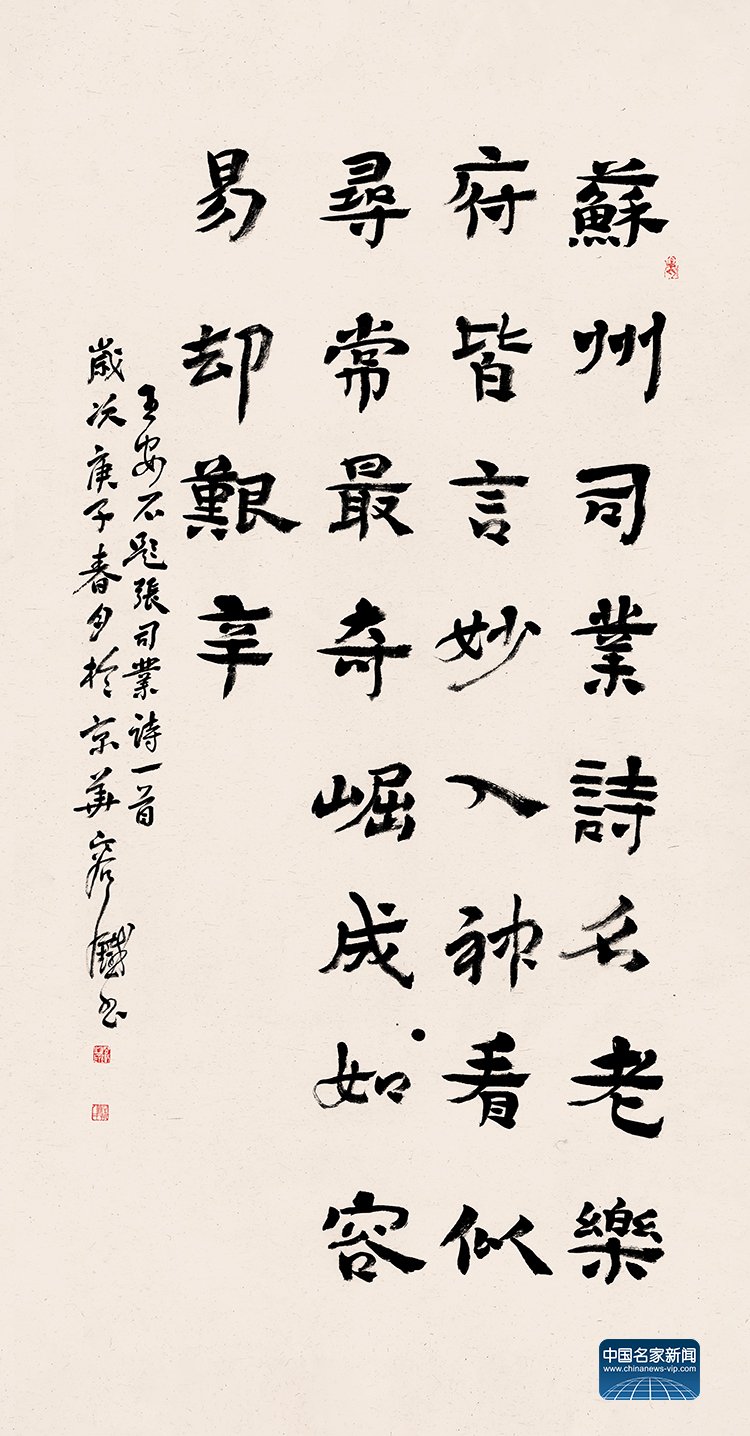 蘇州司業詩名老樂
府皆言妙入神看似
尋常最奇崛成如容
易却艱辛
王安石题張司業詩一首
歲次庚子春月於京華容鐵书
中国名家新闻
www.chinanews-vip.com